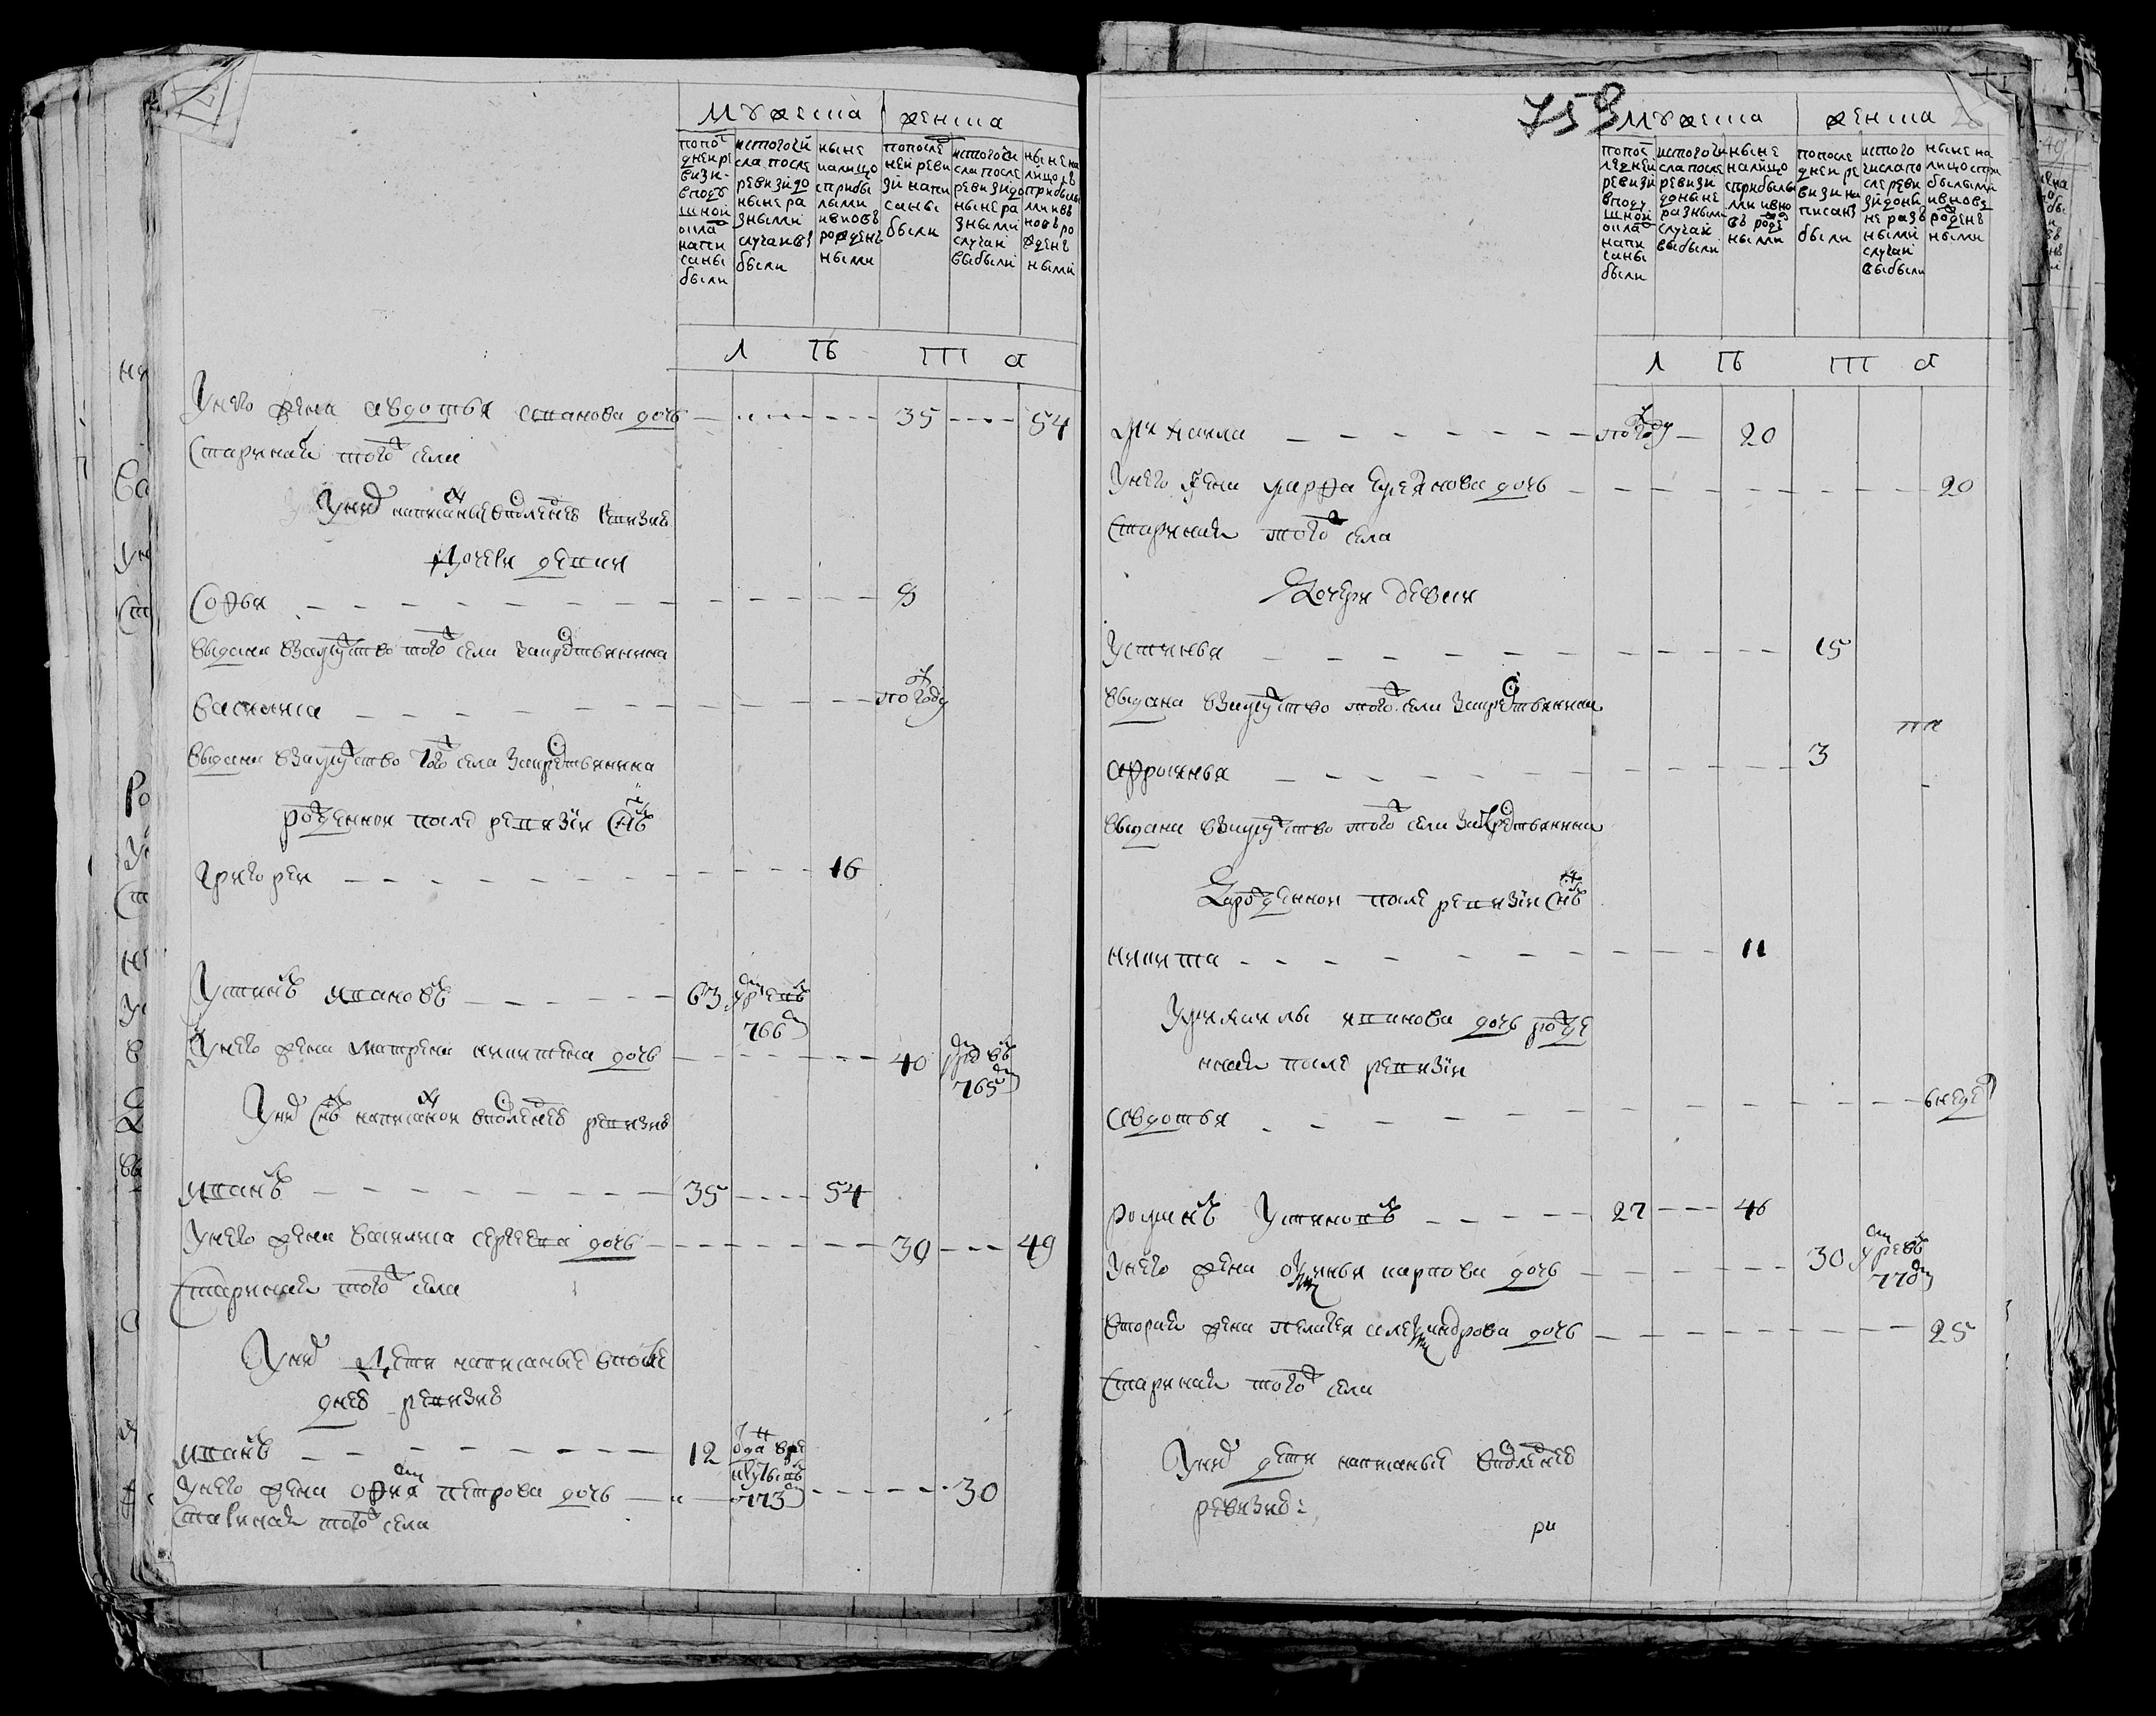 мужеска
женска
попос
ледней ре
визи
вподу
шной
окла
напи
саны
были
истогочи
сла после
ревизи до
ныне ра
зными
случаи вы
были
ныне
налицо
сприбы
лыми
ивновь
рожден
ными
попосле
ней реви
зи напи
саны
были
истогочи
сла после
ревизи до
ныне ра
зными
случаи
выбыли
ныне на
лицо съ
прибылы
ми ивъ
новь ро
жден
ными
л ѣ т а
унево жена авдотья степанова дочь 35 54
старинная того села
уних написанные впоследней ревизие
дочери девки
софья 8
выдана взамужство того села закрестьянина
василиса по году
выдана взамужство того села закрестьянина
рожденной после ревизии сынъ
григореи 16
устинъ ивановъ 63 умре въ 766м
унево жена матрена никитина дочь 40 умре въ 765м
уних сынъ написанной впоследней ревизие
иванъ 35 54
унево жена василиса сергеева дочь 30 49
старинная того села
уних дети написанные впосле
дней ревизие
иванъ 12 отда в ре
круты въ
773м
унево жена офимя петрова дочь 30
старинная того села
759
мужеска
женска
попос
ледней
ревизи
вподу
шной
окла
напи
саны
были
истогочи
сла после
ревизи
доныне
разными
случаи
выбыли
ныне
налицо
сприбылы
ми ивно
въ рожде
ными
попосле
дней ре
визи на
писаны
были
истого
числа по
сле реви
зи дони
не разъ
ными
случаи
выбыли
ныне на
лицо спри
былыми
ивновъ
рожденъ
ными
л ѣ т а
михаила по году 20
унево жена марфа дочь 20
старинная того села
дочери девки
устинья 15
выдана взамужство того села закрестьянина
афросинья 3
выдана взамужство того села закрестьянина
рожденной после ревизии сынъ
никита 11
умихаилы иванова дочь рожде
нная после ревизии
авдотья 6 неде
романъ устиновъ 27 46
унево жена карпова дочь 30 умре въ
770м
вторая жена пелагея александрова дочь 25
старинная того села
уних дети написанные впоследней
ревизие: